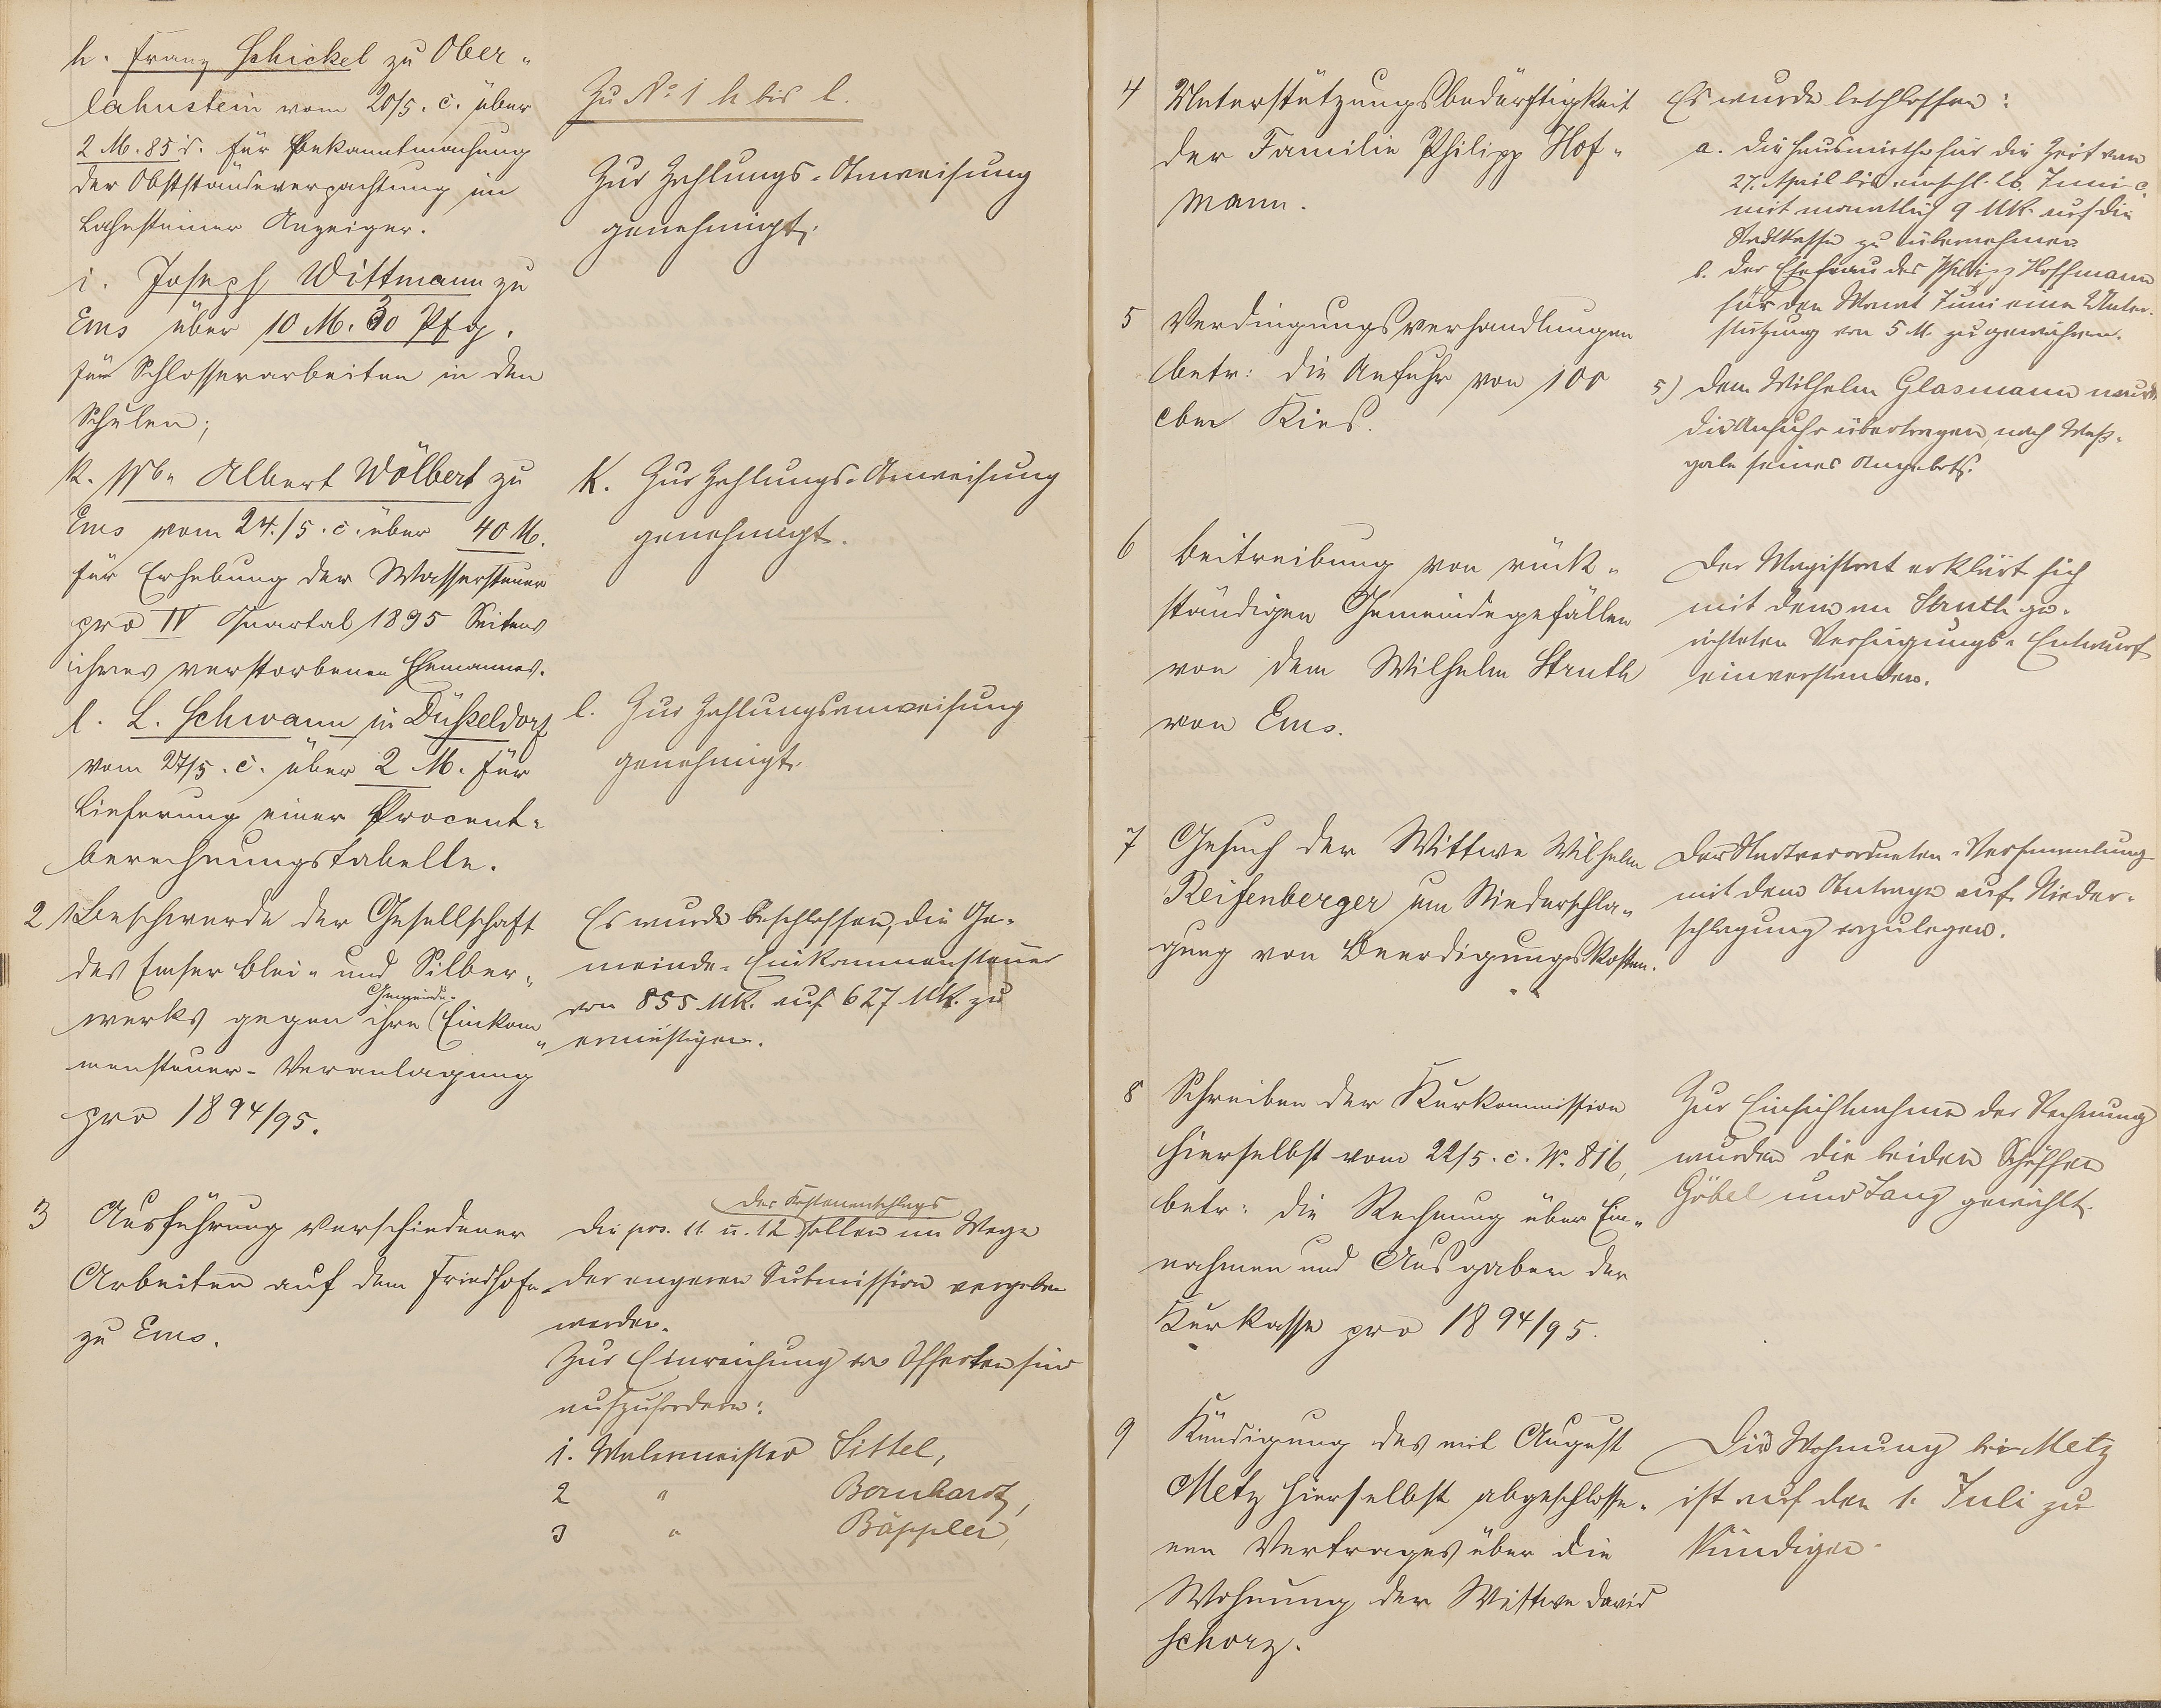 h. Franz Schickel zu Ober-
lahnstein vom 20/5. c. über
2 M. 85 ₰. für Bekanntmachung
der Obstständeverpachtung im
Lahnsteiner Anzeiger.
i. Joseph Wittmann zu
Ems über 10 M. 30 Pfg.
für Schlosserarbeiten in den
Schulen;
Zu No. 1 h bis l.
Zur Zahlungs-Anweisung
genehmigt.
k. Wb. Albert Wölbert zu
Ems vom 24./5. c. über 40 M.
für Erhebung der Wassersteuer
pro IV Quartal 1895 Seitens
ihres verstorbenen Ehemannes.
K. Zur Zahlungs-Anweisung
genehmigt.
l. L. Schwann in Düsseldorf
vom 27/5. c. über 2 M. für
Lieferung einer Procent-
berechnungstabelle.
l. Zur Zahlungsanweisung
genehmigt.
2 Beschwerde der Gesellschaft
des Emser Blei- und Silber-
werks gegen ihre Gemeinde-Einkom-
mensteuer-Veranlagung
pro 1894/95.
Es wurde beschlossen, die Ge-
meinde-Einkommensteuer
von 855 Mk. auf 627 Mk. zu
ermäßigen.
3 Ausführung verschiedener
Arbeiten auf dem Friedhofe
zu Ems.
Die pos. 11 u. 12 des Kostenanschlags sollen im Wege
der engeren Submission vergeben
werden.
Zur Einreichung von Offerten sind
aufzufordern:
1. Malermeister Sittel,
2 " Bernhardt,
3 " Bäppler,
4 Unterstützungsbedürftigkeit
der Familie Philipp Hof-
mann.
Es wurde beschlossen:
a. die Hausmiethe für die Zeit vom
27. April bis einschl. 26. Juni c.
mit monatlich 9 Mk. auf die
Stadtkasse zu übernehmen
b. der Ehefrau des Philipp Hoffmann
für den Monat Juni eine Unter-
stützung von 5 M. zu gewähren.
5 Verdingungsverhandlungen
betr: die Anfuhr von 100
cbm Kies.
5) Dem Wilhelm Glasmann wurde
die Anfuhr übertragen nach Maß-
gabe seines Angebots.
6 Beitreibung von rück-
ständigen Gemeindegefällen
von dem Wilhelm Struth
von Ems.
Der Magistrat erklärt sich
mit dem an Struth ge-
richteten Verfügungs-Entwurf
einverstanden.
7 Gesuch der Wittwe Wilhelm
Reifenberger um Niederschla-
gung von Beerdigungskosten.
Der Stadtverordneten-Versammlung
mit dem Antrage auf Nieder-
schlagung vorzulegen.
8 Schreiben der Kurkommission
hierselbst vom 22/5. c. N. 816,
betr: die Rechnung über Ein-
nahmen und Ausgaben der
Kurkasse pro 1894/95.
Zur Einsichtnahme der Rechnung
wurden die beiden Schöffen
Göbel und Lang gewählt.
9 Kündigung des mit August
Metz hierselbst abgeschlosse-
nen Vertrages über die
Wohnung der Wittwe David
Schorz.
Die Wohnung bei Metz
ist auf den 1. Juli zu
kündigen.